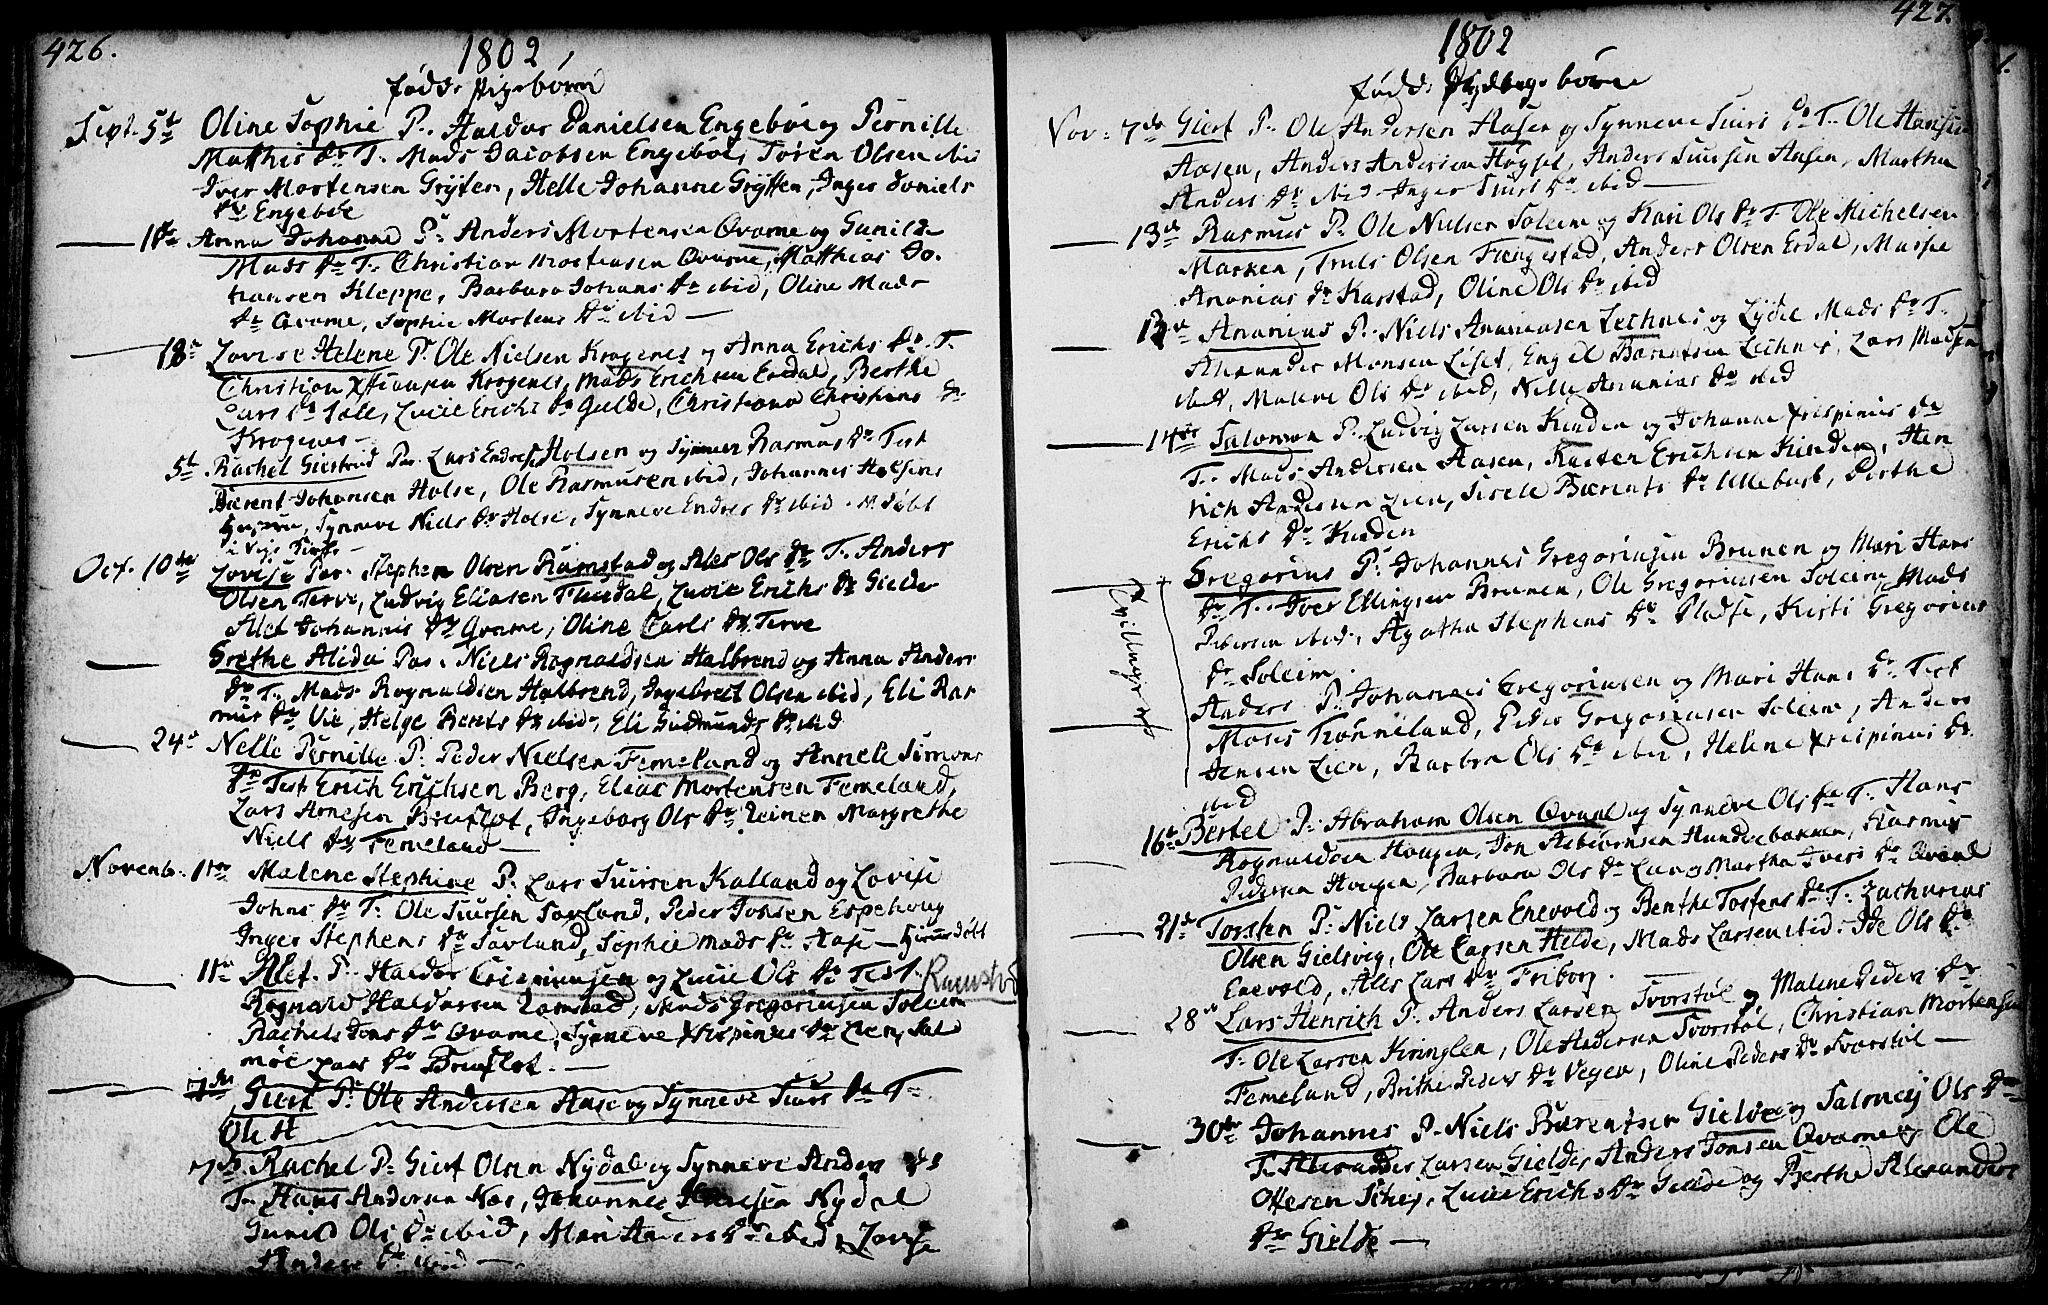 426.
1802
fødde Pigebørn
Sept. 5t Oline Sophie P. Haldor Danielsen Engebøe og Pernille
Mathis Dr T. Mads Jacobsen Engeboe, Søren Olsen ibid
Iver Mortensen Gryten, Helle Johanne Grytten, Inger Daniels
Dr Engebøe
11te Anna Johanne P. Anders Mortensen Qvame og Gunild
Mads Dr T. Christian Mortensen Qvame, Matthias Jo-
hansen Kleppe, Barbara Johans Dr ibid, Oline Mads
Dr Qvame, Sophie Mortens Dr ibid
18e Lovise Helene P. Ole Nielsen Krogenes og Anna Erichs Dr. T.
Christian Krogenes, Mads Erichsen Erdal, Berthe
Lars Dr Lucie Erichs Dr Gielde, Christiana Christians Dr
Krogenes
5t. Rachel Giertrud Par. Lars Endres. Holsen og Synneve Rasmus Dr Test
Bærent Johansen Holse, Ole Rasmusen ibid, Johannes
Synneve Niels Dr Holse, Synneve Endres Dr ibid.
i
Oct. 10de Lovise Par. Stephen Olsen Ramstad og Ales Ols Dr T. Anders
Olsen Terve, Ludvig Eliasen Flugdal, Lucie Erichs Dr Gielde
Alet Johannis Dr Qvame, Oline Carls Dr. Terve
Grethe Alida Par. Niels Rognaldsen Halbrend og Anna Anders
Dr T. Mads Rognaldsen Halbrend, Ingebreit Olsen ibid, Eli Ras
mus Dr Vie, Helge Bents Dr ibid, Eli Gudmunds Dr ibid
24e Nelle Pernille P. Peder Nielsen Femeland og Annele Simons
Dr Test Erich Erichsen Berg, Elias Mortensen Femeland,
Lars Arnesen Bruflot, Ingeborg Ols Dr Reinen Margrethe
Niels Dr Femeland
Novemb. 1ste Malene Stephine P. Lars Siursen Kalland og Lovise
Johns Dr T. Ole Siursen Savland, Peder Jonsen Espehoug
Inger Stephens Dr Savland, Sophie Mads Dr Aase
11te Alet P. Haldor og Lucie Ols Dr Test. Ramstad
Rognald Haldorsen Ramstad, Mads Gregoriusen Soleim
Rachels Jons Dr Qvame, Synneve Xrispinus Dr Lien, Sal
moe Lars Dr Bruflot.
7de Giert P. Ole Andersen Aase og Synneve Siurs Dr T.
Ole H
7de. Rachel P. Giert Olsen Nydal og Synneve Anders Dr
T. Hans Andersen Nos, Johannes Nydal
Guneld Ols Dr ibid, Mari Dr ibid, Lovise
Anders Dr ibid
427.
1802
fødde børn
Nov: 7de Giert P. Ole Andersen Aasen og Synneve Siurs Dr T. Ole Hansen
Aasen, Anders Andersen Høyset, Anders Siursen Aasen, Martha
Anders Dr ibid Inger Siurs Dr ibid
13de Rasmus P. Ole Nielsen Soleim og Kari Ols Dr T. Ole Michelsen
Marken, Truls Olsen Fængestad, Anders Olsen Erdal, Massie
Ananias Dr Karstad, Oline Ols Dr ibid
13de Ananias P. Niels Ananiasen Lechnes og Lydie Mads Dr T.
Alexander Monsen Liset, Engel Bærentsen Lechnes, Lars Madsen
ibid, Malene Ols Dr ibid, Nille Ananias Dr ibid
14de Salomon P. Ludvig Larsen Kinden og Johanne Xrispinus Dr
T. Mads Andersen Aasen, Karsten Erichsen Kinden, Hen
rich Andersen Lien, Sisele Bærents Dr Ullebust, Berthe
Erichs Dr Kinden
Tvillinger
Gregorius P. Johannes Gregoriusen Brunen og Mari Hans
Dr T. Iver Ellingsen Brunen, Ole Gregoriusen Soleim, Mads
Pedersen ibid, Agatha Stephens Dr Pladse, Kirsti Gregorius
Dr Soleim.
Anders P. Johannes Gregoriusen og Mari Hans Dr Test
Moses Rønneland, Peder Gregoriusen Soleim, Anders
Jensen Lien, Barbra Ols Dr ibid, Helene Xrispinus Dr
ibid
16de Bertel P. Abraham Olsen Qvaal og Synneve Ols Dr T. Hans
Rognaldsen Hougen, Jon Asbiørnsen Hundebakken, Rasmus
Pedersen Hougen, Barbara Ols Dr Martha Ivers Dr
21de Torsten P. Niels Larsen Enevold og Benthe Tostens Dr T. Zacharias
Olsen Gielsvig, Ole Larsen Helde, Mads Larsen ibid. Ide Ols Dr
Enevold, Ales Lars Dr Friborg.
28de Lars Henrich P. Anders Larsen Svorstøl og Malene Peders Dr
T. Ole Larsen Ole Andersen Svorstøl, Christian Mortensen
Femeland, Brithe Peders Dr Oline Peders Dr Svorstøl
30te Johannes P. Niels Bærentsen Gielde og Salomey Ols Dr
T. Alexander Larsen Gielde, Anders Jonsen Qvame og Ole
Ottesen Schej, Lucie Erichs Dr Gielde og Berthe Alexanders
Dr Gielde